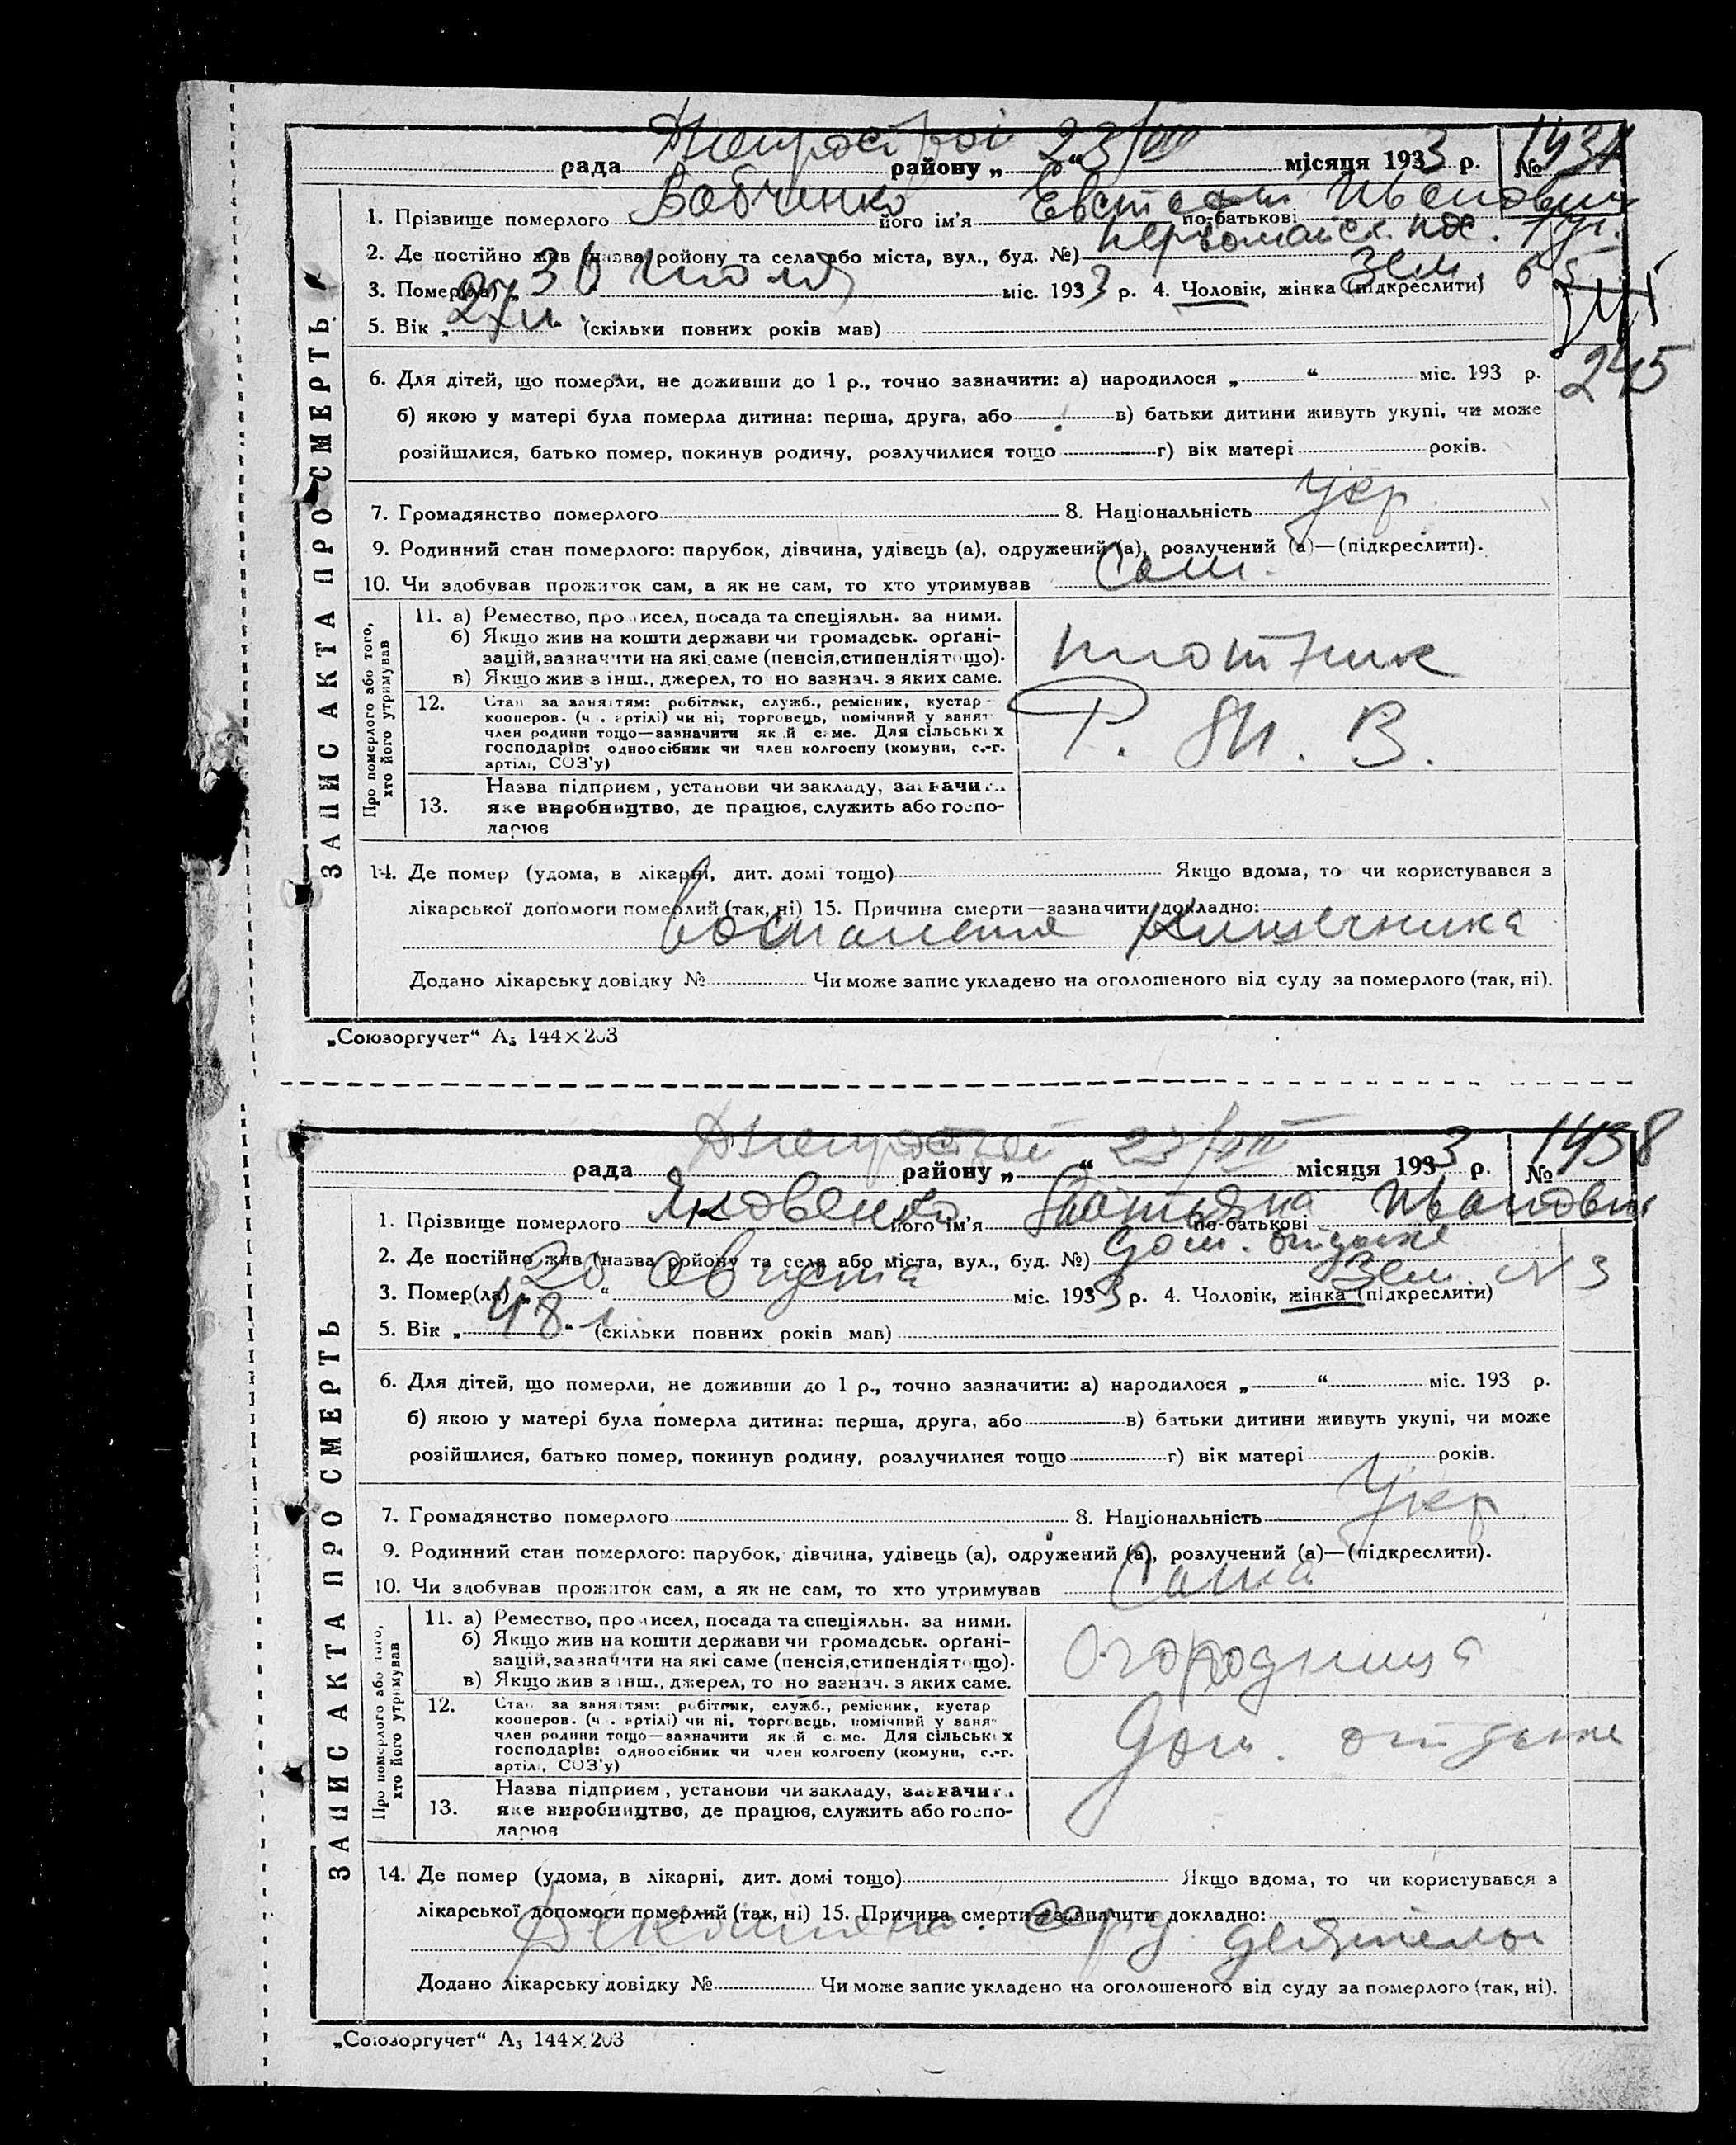 Днепрострой 23/VIII
рада района „ “ місяця 1933 р. № 1437
1. Прізвище померлого Бабченко його ім'я Евстафий по-батькові Иванович
2. Де постійно жив (назва ройону та села або міста, вул., буд. №) Первомайск. пос. 1 ул.
Зем. 65
3. Помер(ла) „ 30 июля міс. 1933 р. 4. Чоловік, жінка (підкреслити)
5. Вік „ 27 л. “ (скільки повних років мав)
245
6. Для дітей, що померли, не доживши до 1 р., точно зазначити: а) народилося „ “ міс. 193 р.
б) якою у матері була померла дитина: перша, друга, або в) батьки дитини живуть укупі, чи може
розійшлися, батько помер, покинув родину, розлучилися тощо г) вік матері років.
7. Громадянство померлого 8. Національність Укр
9. Родинний стан померлого: парубок, дівчина, удівець (а), одружений (а), розлучений (а)—(підкреслити).
10. Чи здобував прожиток сам, а як не сам, то хто утримував Сам.
ЗАПИС АКТА ПРО СМЕРТЬ
Про померлого або того, хто його утримував
11. а) Ремество, промисел, посада та спеціяльн. за ними.
б) Якщо жив на кошти держави чи громадськ. орґані-
зацій, зазначити на які саме (пенсія, стипендія тощо).
в) Якщо жив з інш., джерел, то но зазнач. з яких саме.
плотник
12. Стан за заняттям: робітник, служб., ремісник, кустар
кооперов. (ч . артілі) чи ні, торговець, помічний у занят
член родини тощо—зазначити як й саме. Для сільськ х
господарів: одноосібник чи член колгоспу (комуни, с.-г.
артілі, СОЗ'у)
13. Назва підприєм , установи чи закладу, зазначити
яке виробництво, де працює, служить або госпо-
дарює
14. Де помер (удома, в лікарні, дит. домі тощо) Якщо вдома, то чи користувався з
лікарської допомоги померлий (так, ні) 15. Причина смерти—зазначити докладно:
Воспаление Кишечника
Додано лікарську довідку № Чи може запис укладено на оголошеного від суду за померлого (так, ні).
„Союзоргучет“ А₅ 144×203
Днепрострой 23/VIII
рада району „ “ місяця 1933 р. № 1438
1. Прізвище померлого Яковенко його ім'я Татьяна по-батькові Ивановн
2. Де постійно жив (назва ройону та села або міста, вул., буд. №) дом. отдыха
Зем. № 3
3. Помер(ла) „ 20 августа міс. 1933 р. 4. Чоловік, жінка (підкреслити)
5. Вік „ 48 л. “ (скільки повних років мав)
6. Для дітей, що померли, не доживши до 1 р., точно зазначити: а) народилося „ “ міс. 193 р.
б) якою у матері була померла дитина: перша, друга, або в) батьки дитини живуть укупі, чи може
розійшлися, батько помер, покинув родину, розлучилися тощо г) вік матері років.
7. Громадянство померлого 8. Національність Укр
9. Родинний стан померлого: парубок, дівчина, удівець (а), одружений (а), розлучений (а)—(підкреслити).
10. Чи здобував прожиток сам, а як не сам, то хто утримував Сама
ЗАПИС АКТА ПРО СМЕРТЬ
Про померлого або того, хто його утримував
11. а) Ремество, промисел, посада та спеціяльн. за ними.
б) Якщо жив на кошти держави чи громадськ. орґані-
зацій, зазначити на які саме (пенсія, стипендія тощо).
в) Якщо жив з інш., джерел, то но зазнач. з яких саме.
Огородница
12. Стан за заняттям: робітник, служб., ремісник, кустар
кооперов. (ч . артілі) чи ні, торговець, помічний у занят
член родини тощо—зазначити як й саме. Для сільськ х
господарів: одноосібник чи член колгоспу (комуни, с.-г.
артілі, СОЗ'у)
дом. отдыха
13. Назва підприєм , установи чи закладу, зазначити
яке виробництво, де працює, служить або госпо-
дарює
14. Де помер (удома, в лікарні, дит. домі тощо) Якщо вдома, то чи користувався з
лікарської допомоги померлий (так, ні) 15. Причина смерти—зазначити докладно:
серд. деятельн
Додано лікарську довідку № Чи може запис укладено на оголошеного від суду за померлого (так, ні).
„Союзоргучет“ А₅ 144×203